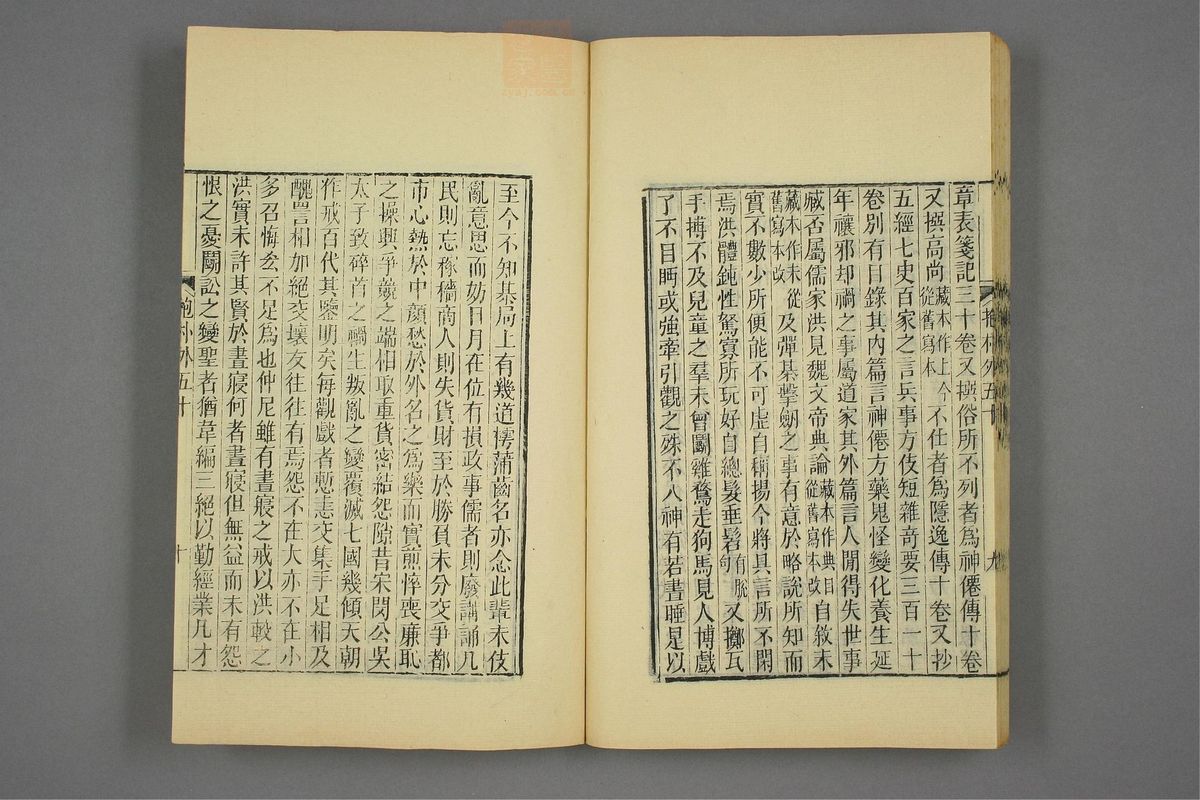 章表箋記三十卷又撰俗所不列者爲神僊傳十卷
又撰高尚藏本作上今從舊寫本不仕者爲隱逸傳十卷又抄
五經七史百家之言兵事方伎短雜奇要三百一十
卷別有目錄其內篇言神僊方藥鬼怪變化養生延
年禳邪却禍之事屬道家其外篇言人閒得失世事
臧否屬儒家洪見魏文帝典論藏本作典目從舊寫本改自敘末
藏本作未從舊寫本改及彈棊擊劒之事有意於略說所知而
實不數少所便能不可虛自稱揚今將具言所不閑
焉洪體鈍性駑寡所玩好自總髮垂髫有脫句又擲瓦
手摶不及兒童之羣未曾鬭雞鶩走狗馬見人博戲
了不目眄或強牽引觀之殊不入神有若晝睡是以
抱朴外五十
九
至今不知棊局上有幾道樗蒲齒名亦念此輩末伎
亂意思而妨日月在位有損政事儒者則廢講誦凡
民則忘稼穡商人則失貨財至於勝負未分交爭都
市心熱於中顏愁於外名之爲樂而實煎悴喪廉恥
之操興爭競之端相取重貨密結怨隙昔宋閔公吳
太子致碎首之禍生叛亂之變覆滅七國幾傾天朝
作戒百代其鑒明矣每觀戲者慙恚交集手足相及
醜詈相加絕交壞友往往有焉怨不在大亦不在小
多召悔吝不足爲也仲尼雖有晝寢之戒以洪較之
洪實未許其賢於晝寢何者晝寢但無益而未有怨
恨之憂鬭訟之變聖者猶韋編三絕以勤經業凡才
抱朴外五十
十